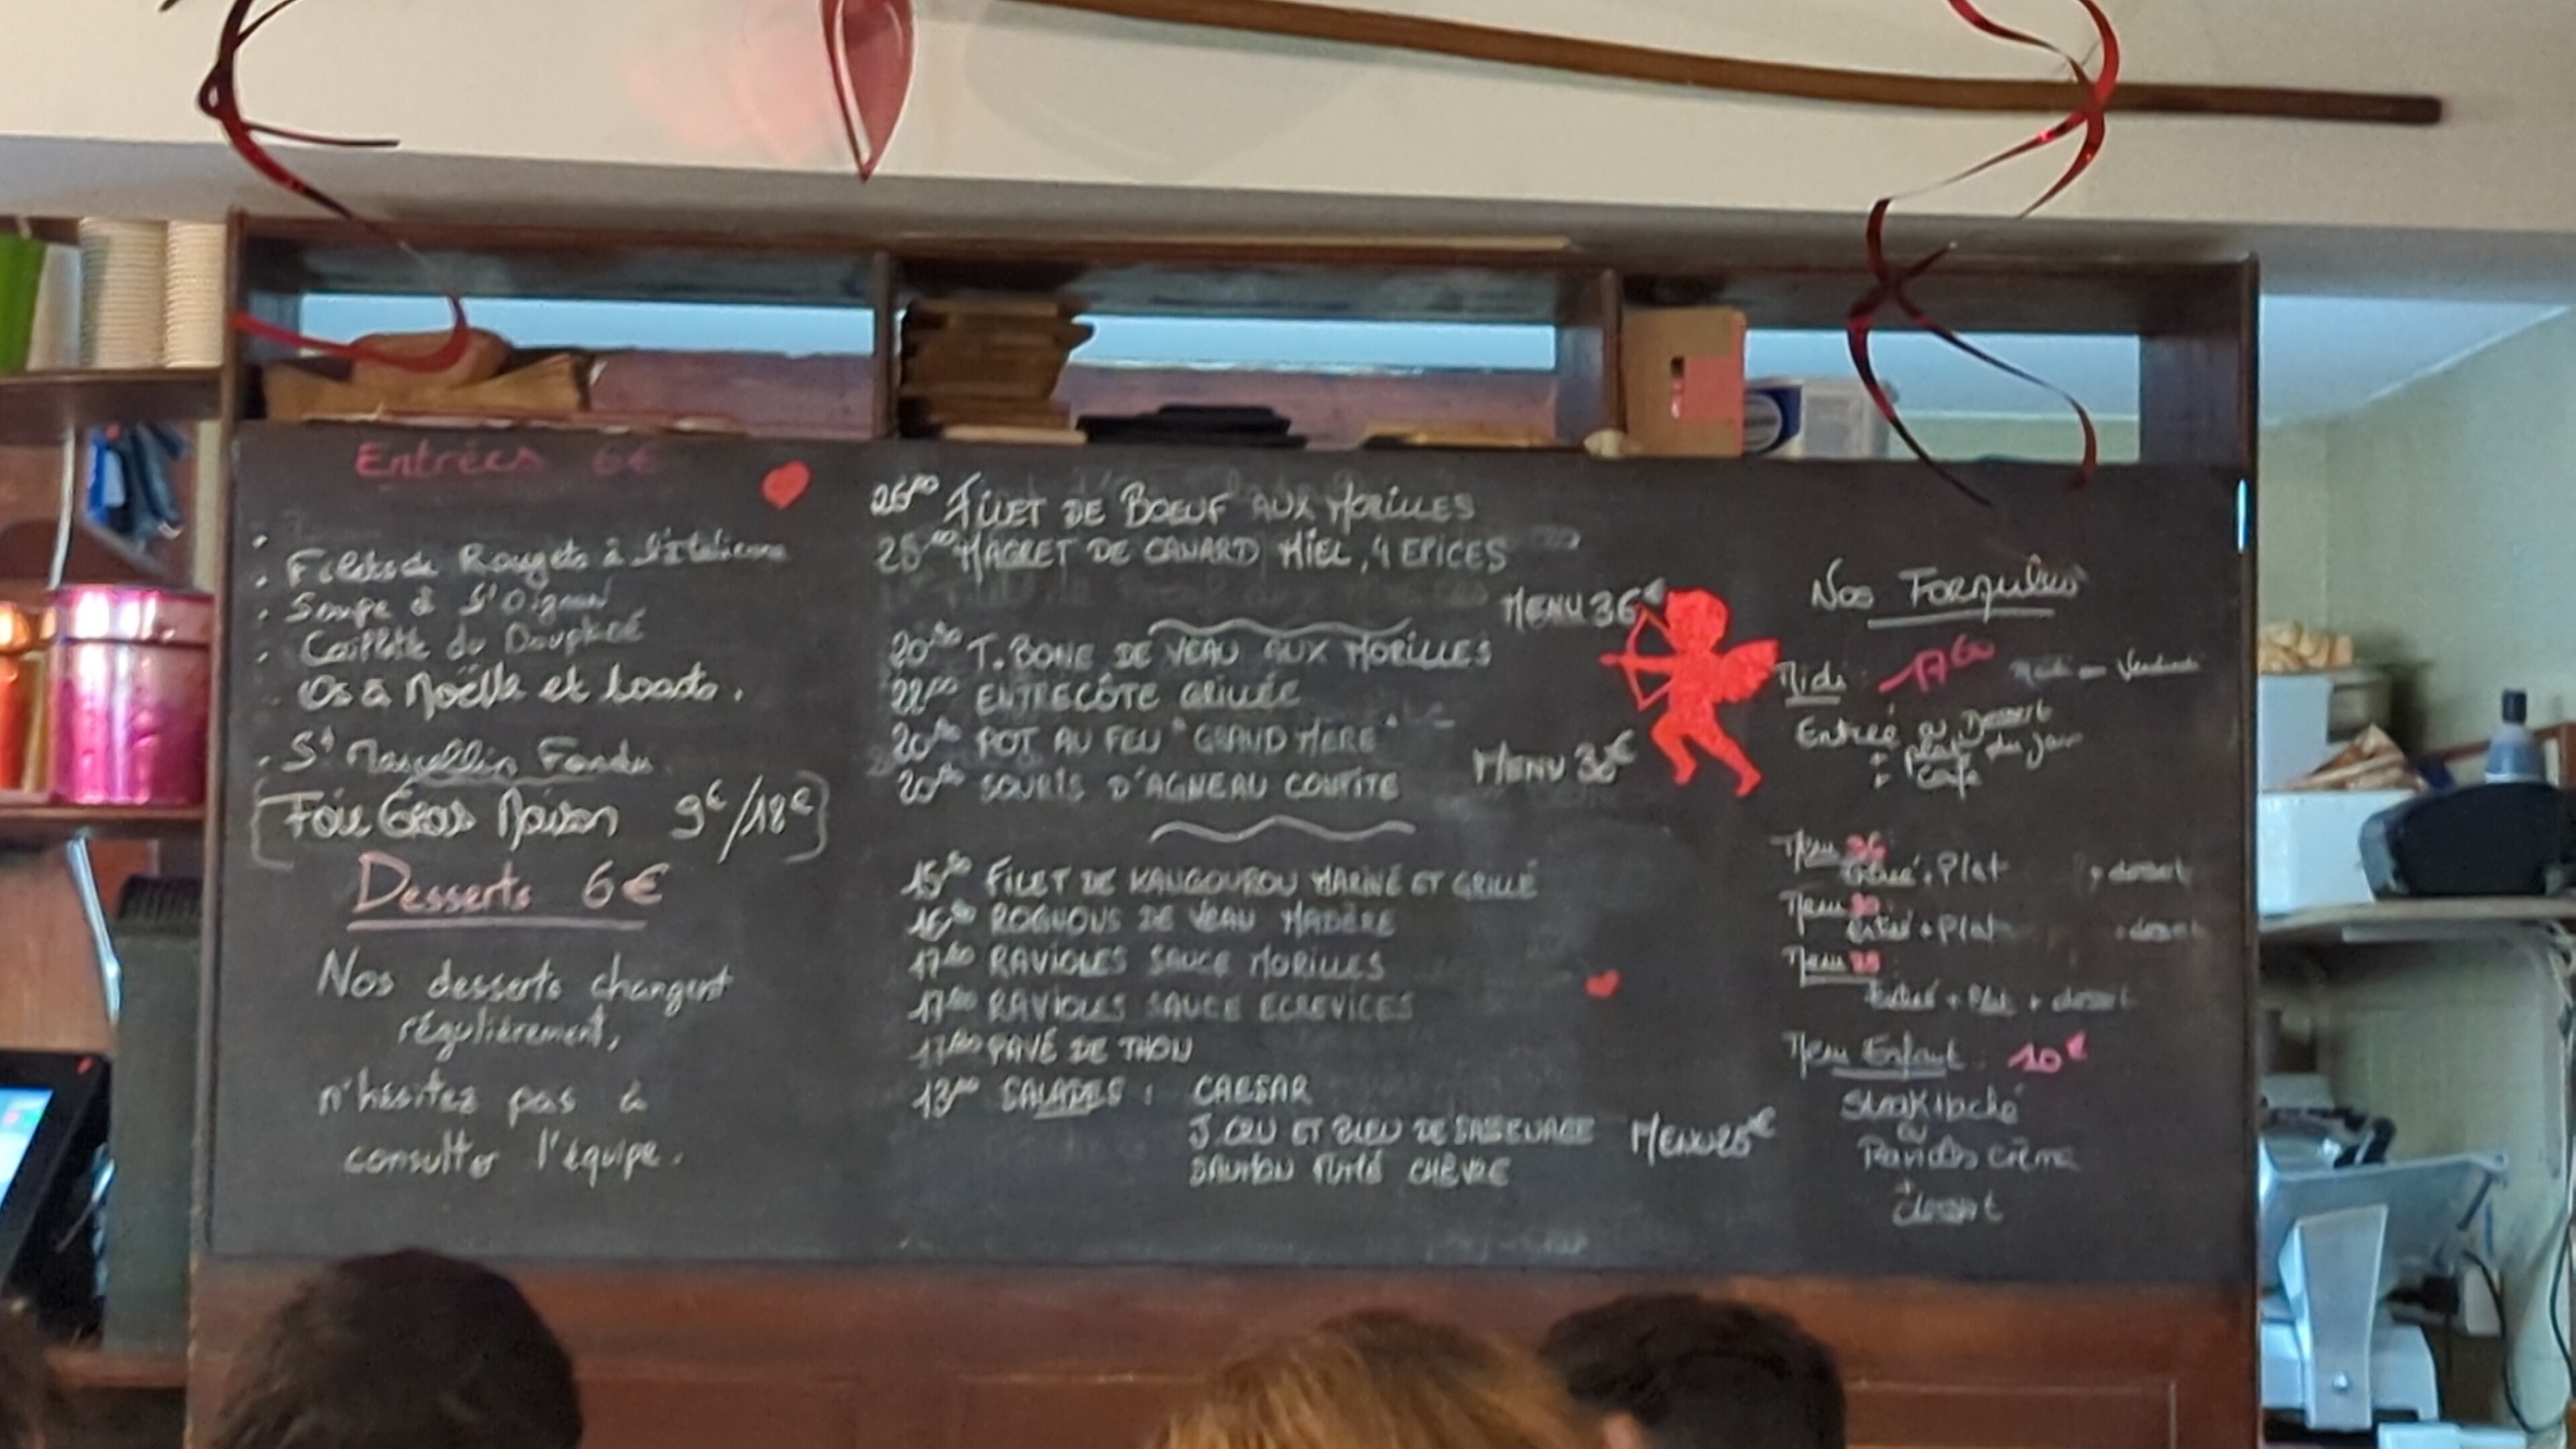 Entrées 6€
. Filets de Rougets à l'Italienne
. Soupe à l'Oignon
. Caillette du Dauphiné
. Os à Moëlle et toasts.
. St Marcellin Fondu
[Foie Gras Maison 9€/18€]
Desserts 6€
Nos desserts changent
régulièrement,
n'hésitez pas à
consulter l'équipe.
FILET DE BOEUF AUX MORILLES
MAGRET DE CANARD MIEL, 4 EPICES
MENU 36€
T. BONE DE VEAU AUX MORILLES
ENTRECÔTE GRILLÉE
POT AU FEU "GRAND MERE"
SOURIS D'AGNEAU CONFITE
MENU 30€
FILET DE KANGOUROU MARINÉ ET GRILLÉ
ROGNONS DE VEAU MADÈRE
RAVIOLES SAUCE MORILLES
RAVIOLES SAUCE ECREVICES
PAVÉ DE THON
SALADES : CAESAR
J. CRU ET BLEU DE SASSENAGE
SAUMON FUMÉ CHÈVRE
MENU 25€
Nos Formules
Midi :
Entrée ou Dessert
+ plat du jour
+ Café
Menu 36
Entrée + Plat + dessert
Menu 30
Entrée + Plat + dessert
Menu 25
Entrée + Plat + dessert
Menu Enfant : 10€
Steak haché
ou
Ravioles crème
+
dessert